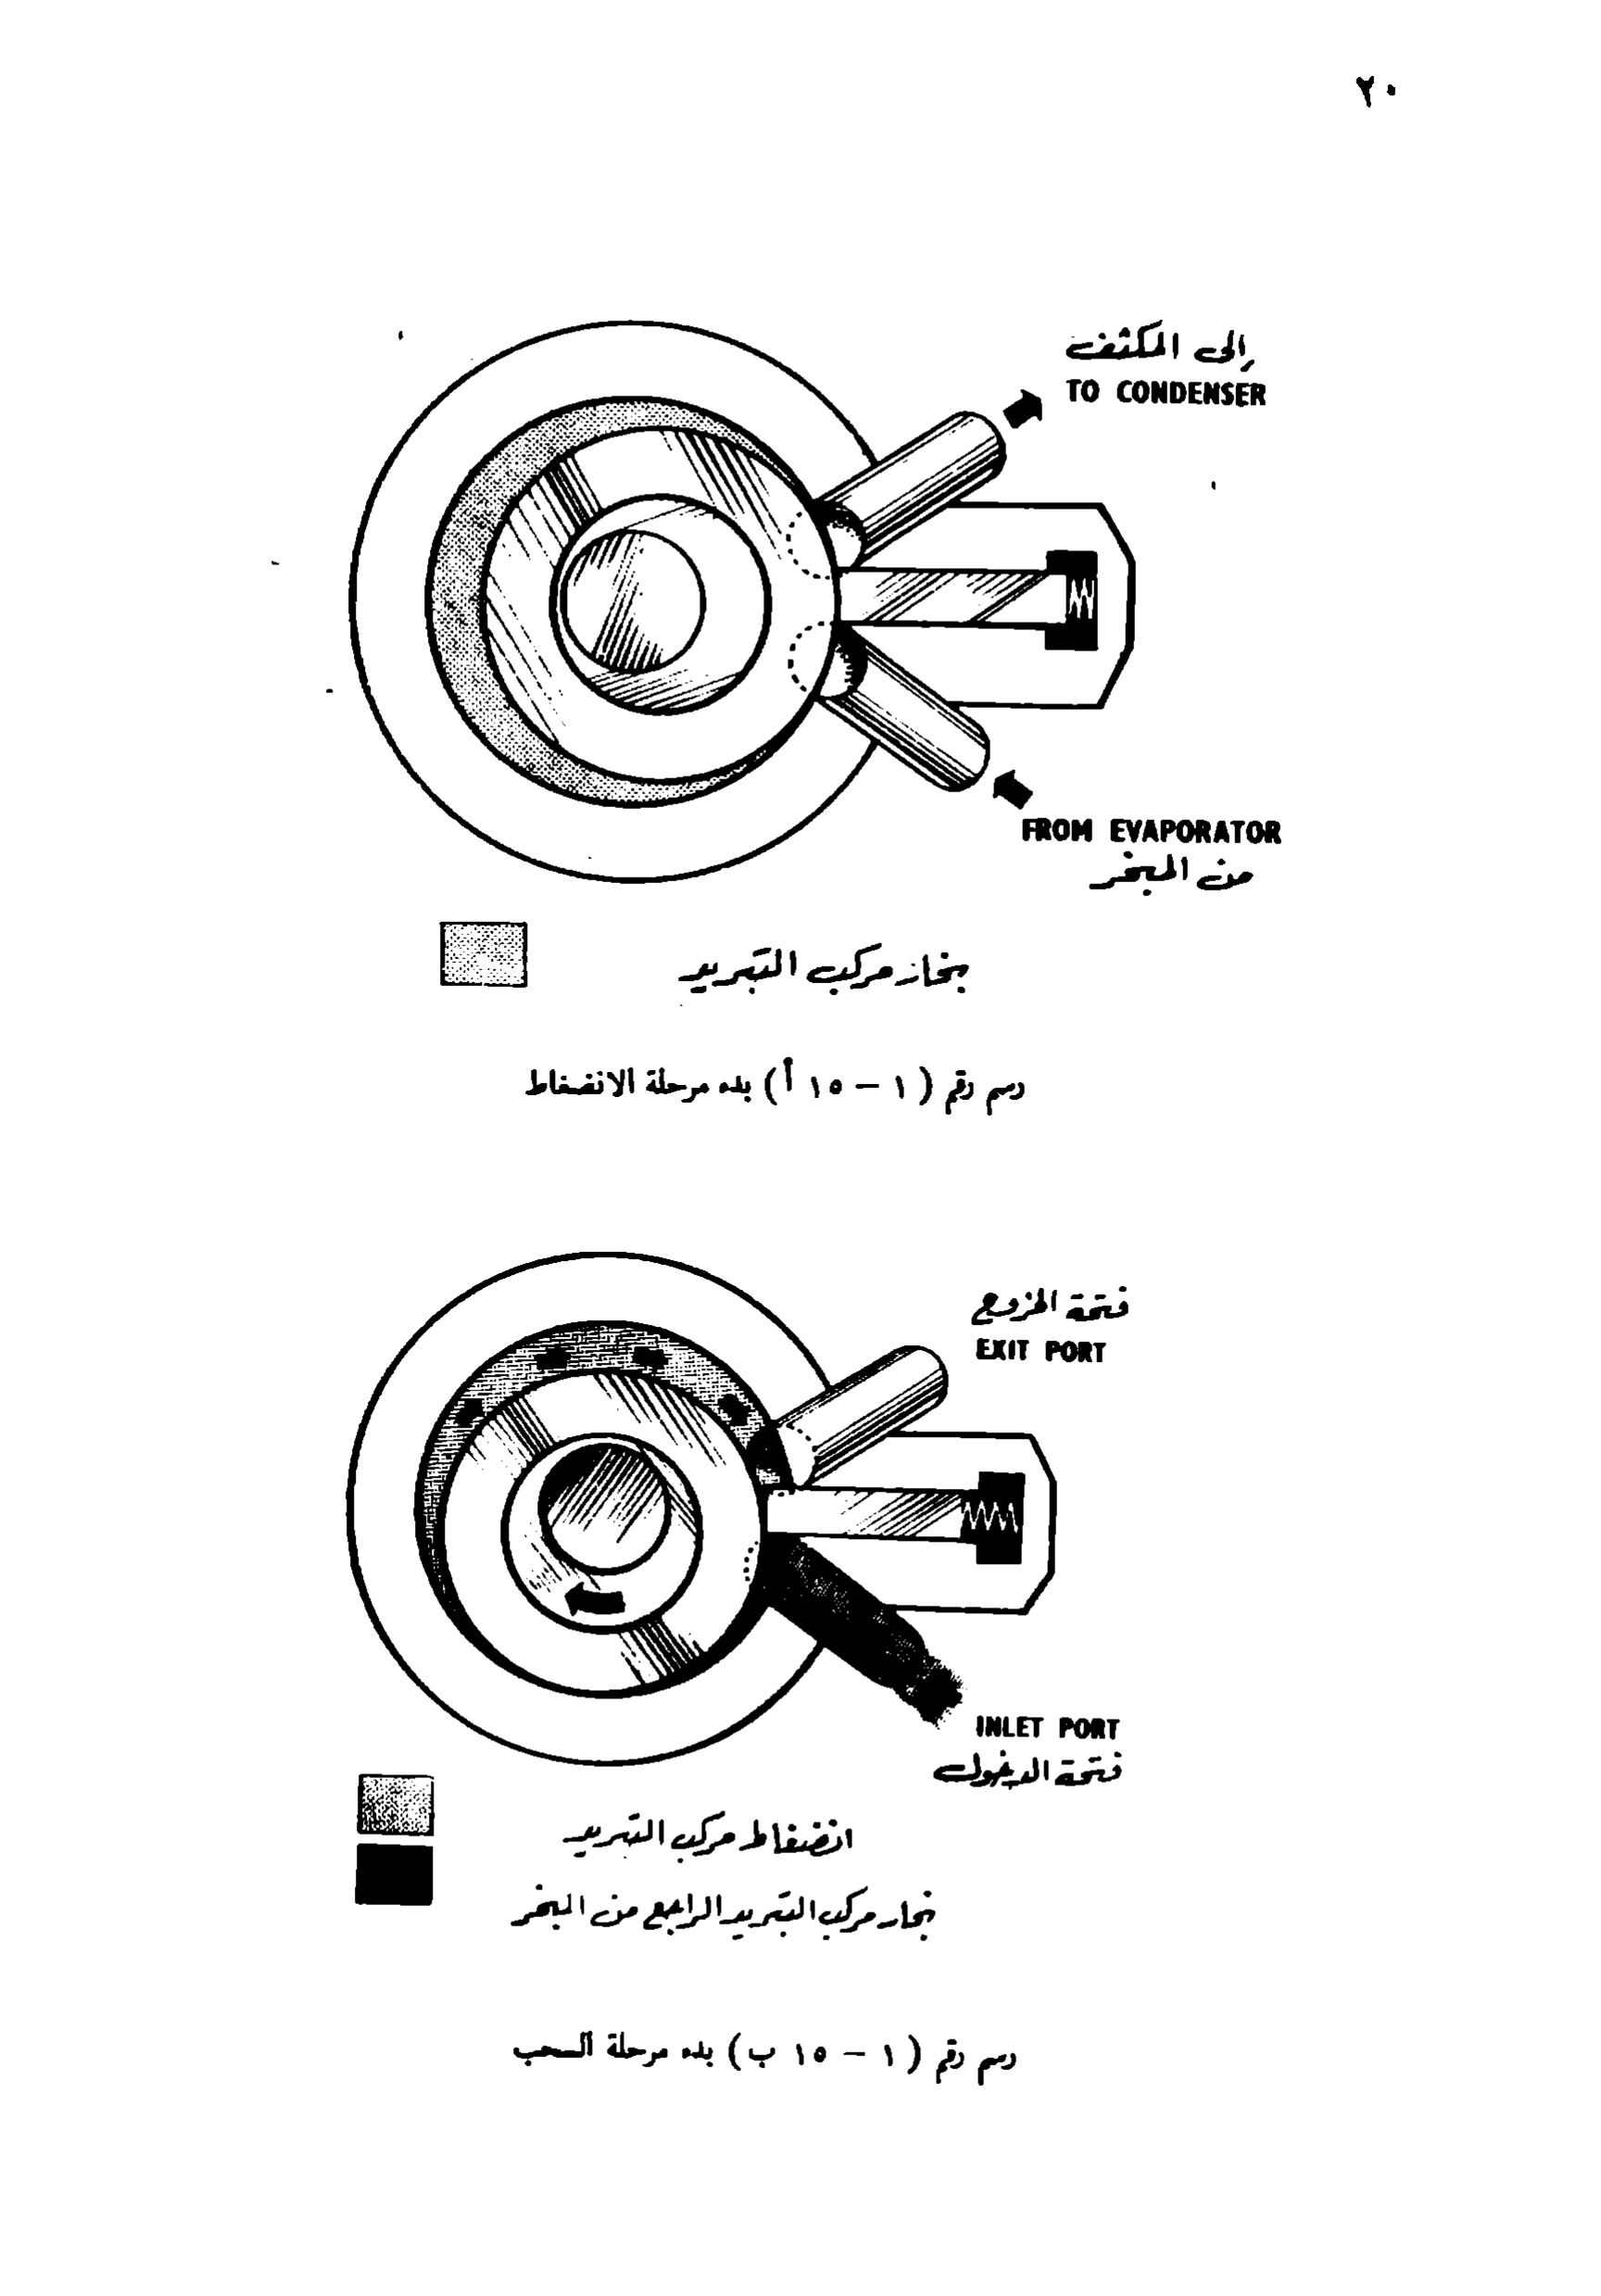 ٢٠
إلى المكثف
TO CONDENSER
FROM EVAPORATOR
من المبخر
بخار مركب التبريد
رسم رقم ( ١ - ١٥ أ ) بدء مرحلة الانضغاط
فتحة الخروج
EXIT PORT
INLET PORT
فتحة الدخول
انضغاط مركب التبريد
بخار مركب التبريد الراجع من المبخر
رسم رقم ( ١ - ١٥ ب ) بدء مرحلة السحب